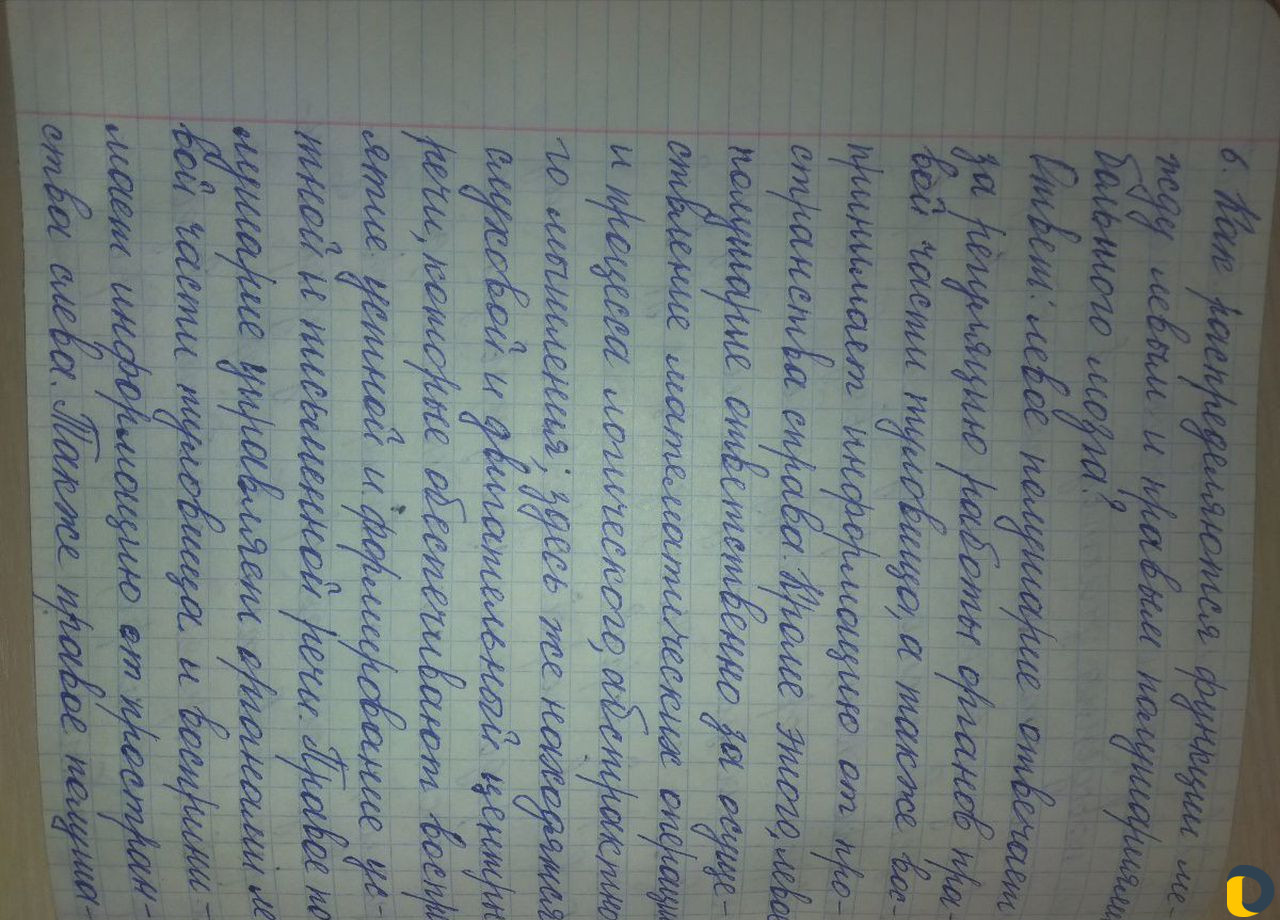 6. Как распределяются функции ме-
жду левым и правым полушариями
большого мозга?
Ответ: левое полушарие отвечает
за регуляцию работы органов пра-
вой части туловища, а также вос-
принимает информацию от про-
странства справа. Кроме этого, лево
полушарие ответственно за осуще-
ствление математических операци
и процесса логического, абстрактно
го мышления; здесь же находятся
слуховой и двигательный центры
речи, которые обеспечивают воспр
ятие устной и формирование ус-
тной и письменной речи. Правое по
лушарие управляет органами ле
вой части туловища и восприни-
мает информацию от простран-
ства слева. Также правое полуша-